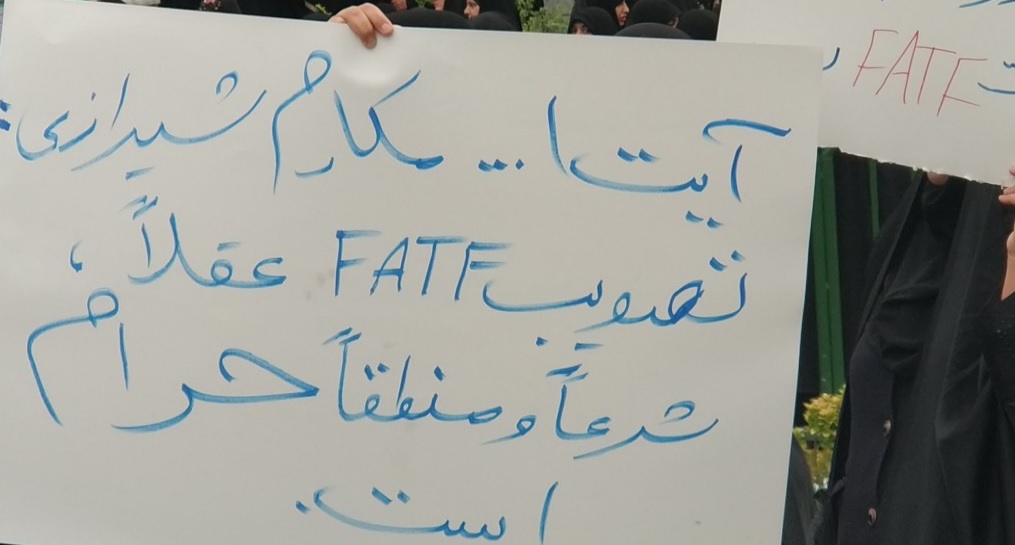 آیت ا... مکارم شیرازی:
تصویب FATF عقلاً،
شرعاً و منطقاً حرام
است.
FATF